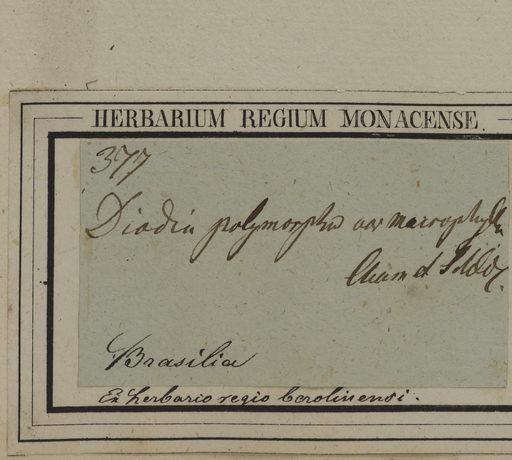 HERBARIUM REGIUM MONACENSE.
377
Diodia polymorpha var macrophylla
Cham et Schld.
Brasilia
Ex herbario regio berolinensi.